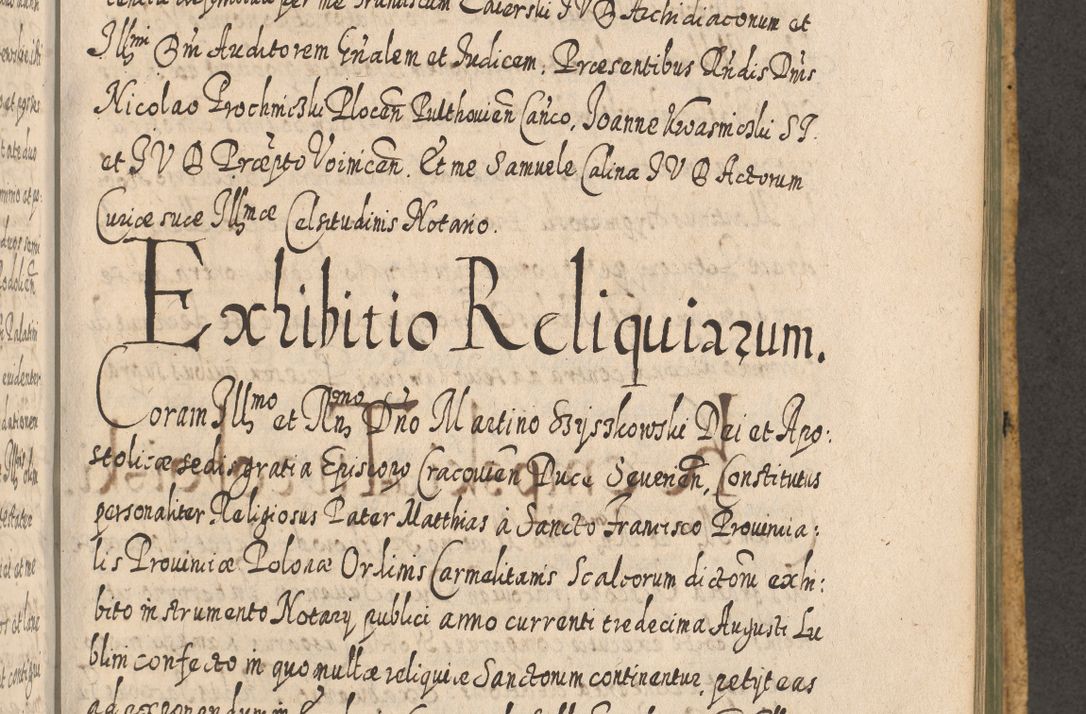 per me Franciscum Zaierski I V B Archidiaconum et
Illmi Dni Auditorem Gñalem et Iudicem, Præsentibus Rñdis Dñis
Nicolao Prochniczki Plocen̄ Pulthouien̄ Cañco, Ioanne Kwasniczki S P.
et I V B Præpto Voinicen̄. Et me Samuele Calina I V B Actorum
Curiæ suæ Illmæ Celsitudinis Notario.
Exhibitio Reliquiarum.
Coram Illmo et Rñmo Dño Martino Szyszkowski Dei et Apo:
stolicæ sedis gratia Episcopo Cracouien̄ Duce Seuerien̄, Constitutus
personaliter Religiosus Pater Matthias à Sancto Francisco Prouincia:
lis Prouinciæ Polonæ Ordinis Carmelitanis Scalceorum dictorū exhi:
bito instrumento Notarÿ publici anno currenti tredecima Augusti Lu
blini confecto in quo multæ reliquiæ Sanctorum continentur, petÿt eas
ad exponendum in